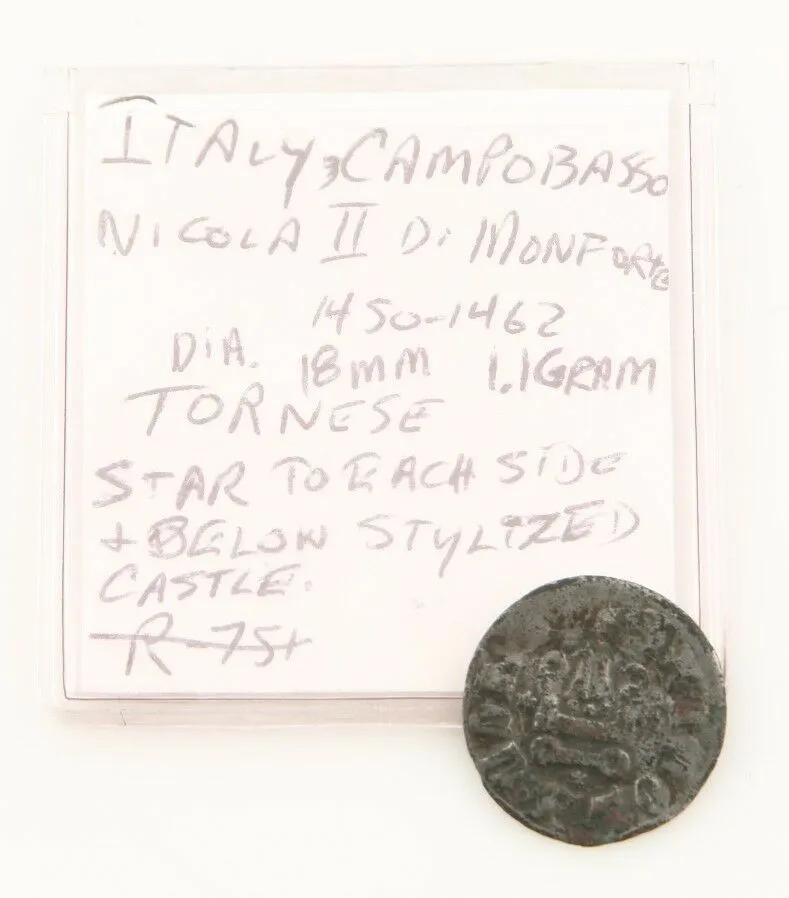 ITALY, CAMPOBASSO
NICOLA II Di MONFORTE
1450-1462
DiA. 18MM 1.1GRAM
TORNESE
STAR TO EACH SIDE
+ BELOW STYLIZED
CASTLE.
R-75+